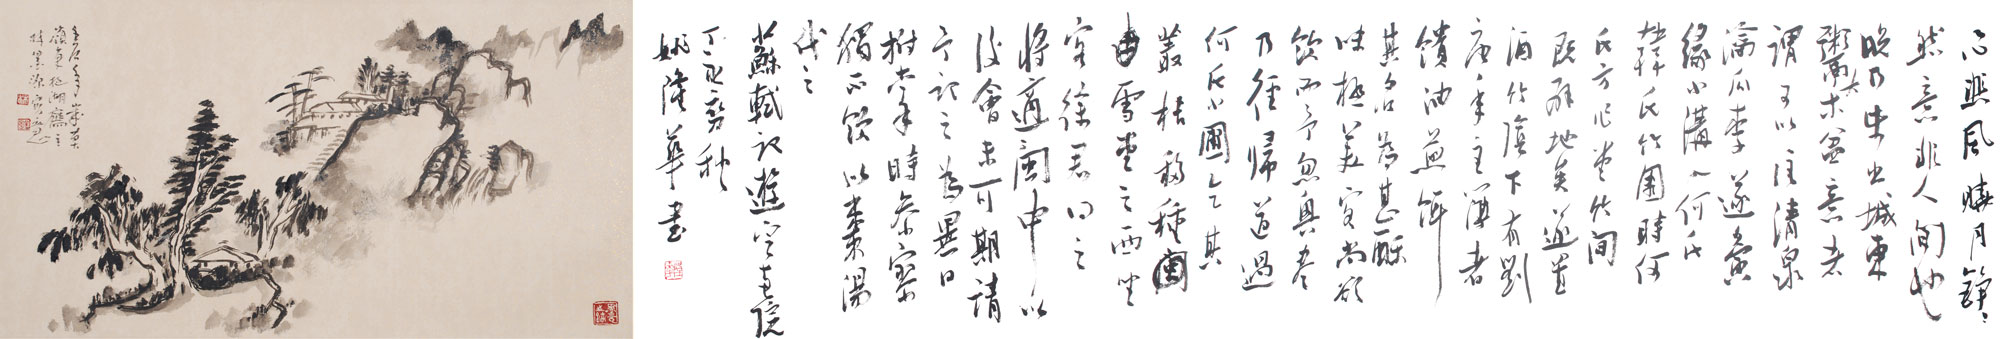 作悲風曉月錚錚
然意非人間也
晚乃步出城東
鬻大木盆意者
謂可以注清泉
瀹瓜李遂夤
緣小溝入何氏
韓氏竹園時何
氏方作堂竹間
既辟地矣遂置
酒竹陰下有劉
唐年主簿者
饋油煎餌
其名為甚酥
味極美客尚欲
飲而予忽興盡
乃徑歸道過
何氏小圃乞其
叢桔移種
雪堂之西坐
客徐君得之
將適閩中以
後會未可期請
予記之為異日
拊掌時參寥
獨不飲以棗湯
代之
蘇軾記遊定惠院
秋
姚隆華書